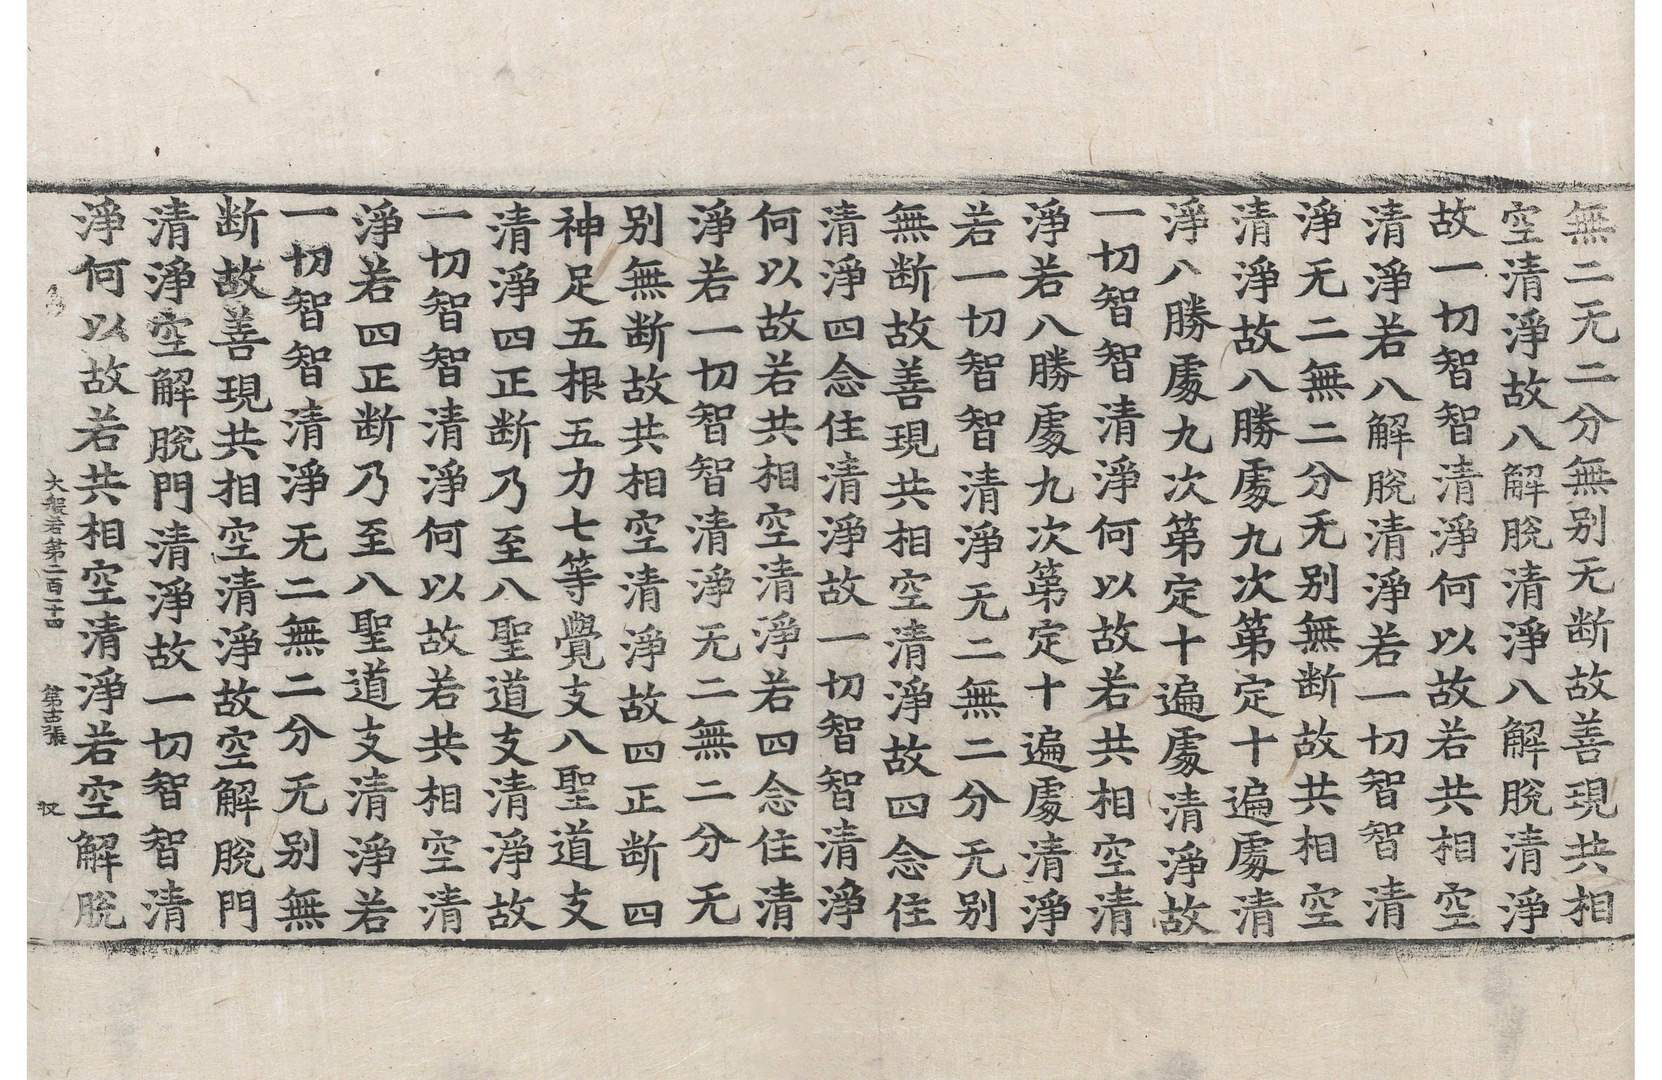 無二无二分無别无断故善現共相
空清淨故八解脫清淨八解脫清淨
故一切智智清淨何以故若共相空
清淨若八解脫清淨若一切智智清
淨无二無二分无别無断故共相空
清淨故八勝處九次第定十遍處清
淨八勝處九次第定十遍處清淨故
一切智智清淨何以故若共相空清
淨若八勝處九次第定十遍處清淨
若一切智智清淨无二無二分无别
無断故善現共相空清淨故四念住
清淨四念住清淨故一切智智清淨
何以故若共相空清淨若四念住清
淨若一切智智清淨无二無二分无
别無断故共相空清淨故四正断四
神足五根五力七等覺支八聖道支
清淨四正断乃至八聖道支清淨故
一切智智清淨何以故若共相空清
淨若四正断乃至八聖道支清淨若
一切智智清淨无二無二分无别無
断故善現共相空清淨故空解脫門
清淨空解脫門清淨故一切智智清
淨何以故若共相空清淨若空解脫
大般若第二百二十四 第十四張